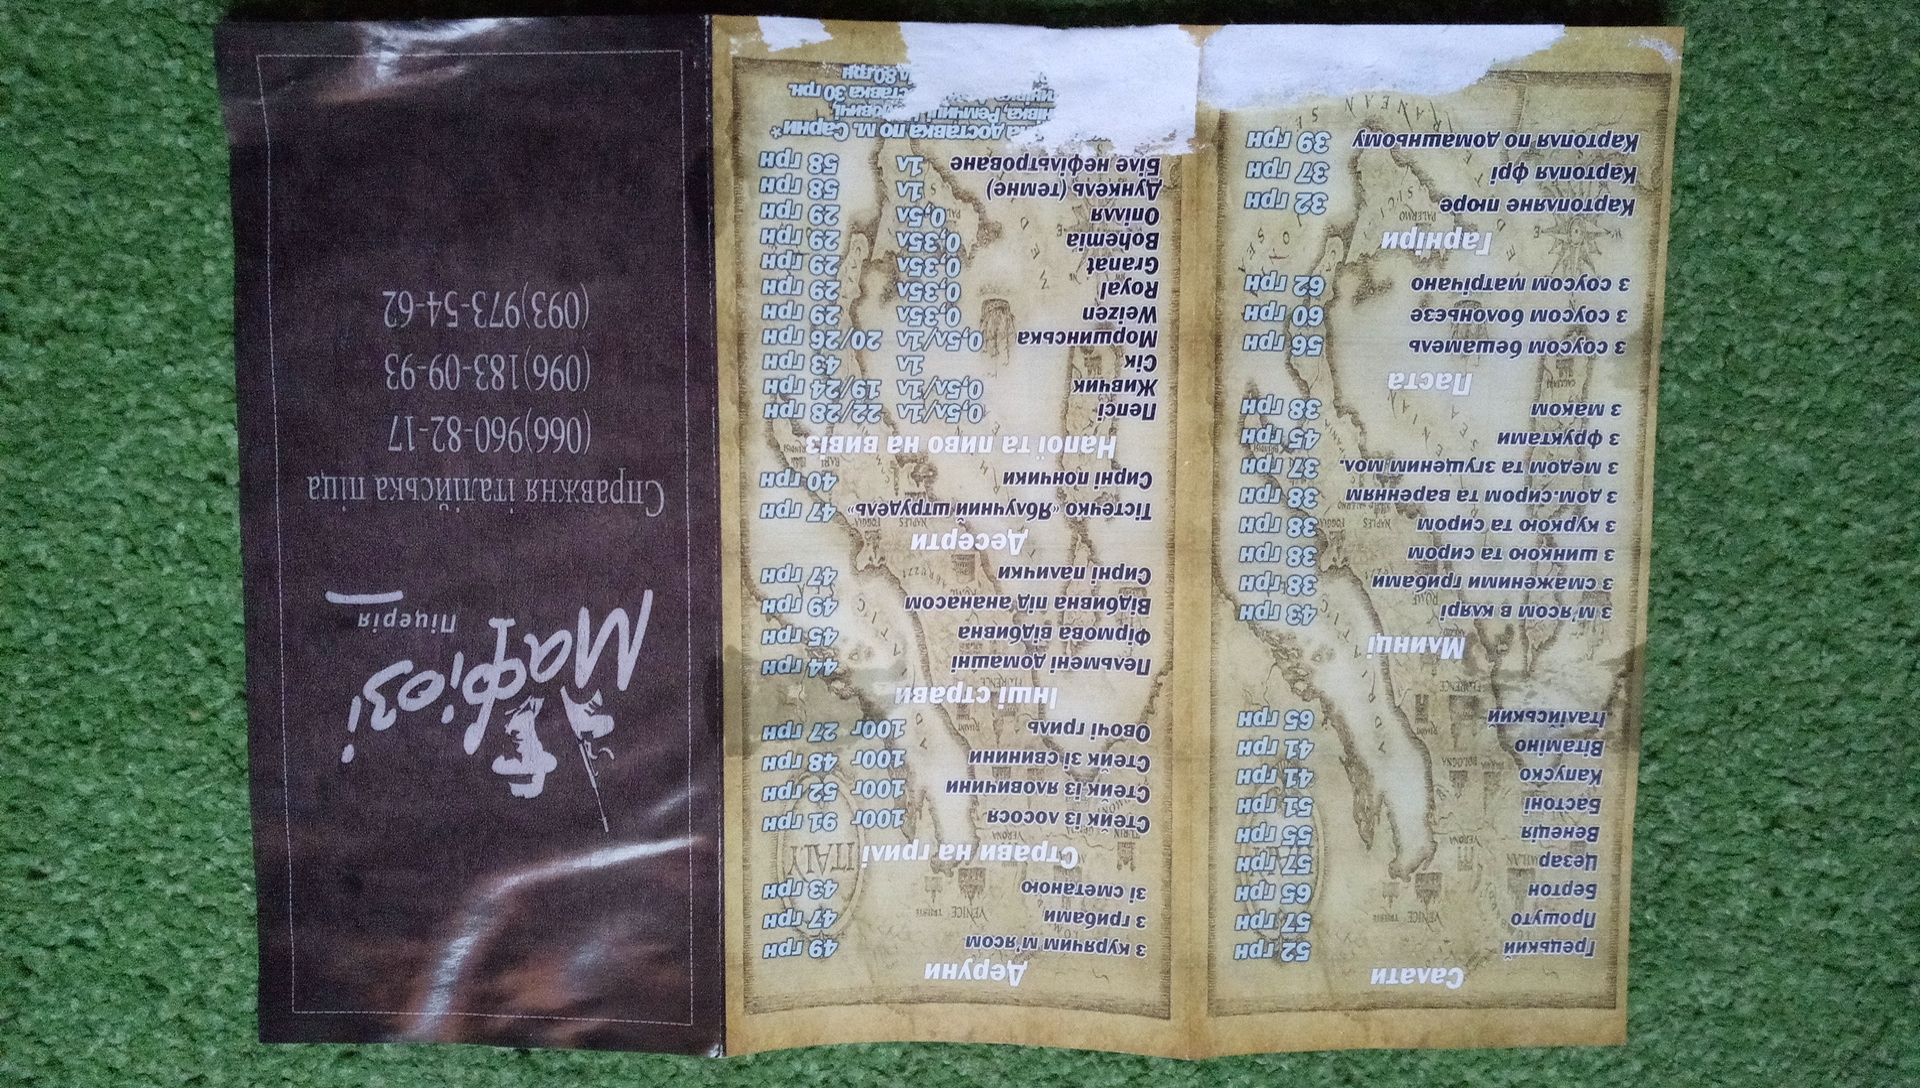 Салати
Грецький 52 грн
Прошуто 57 грн
Бертон 65 грн
Цезар 57 грн
Венеція 55 грн
Бастоні 51 грн
Капуско 41 грн
Вітаміно 41 грн
Італійський 65 грн
Млинці
з м'ясом в клярі 43 грн
з смаженими грибами 38 грн
з шинкою та сиром 38 грн
з куркою та сиром 38 грн
з дом.сиром та варенням 38 грн
з медом та згущеним мол. 37 грн
з фруктами 45 грн
з маком 38 грн
Паста
з соусом бешамель 56 грн
з соусом болоньезе 60 грн
з соусом матрічано 62 грн
Гарніри
Картопляне пюре 32 грн
Картопля фрі 37 грн
Картопля по домашньому 39 грн
Деруни
з курячим м'ясом 49 грн
з грибами 47 грн
зі сметаною 43 грн
Страви на грилі
Стейк із лосося 100г 91 грн
Стейк із яловичини 100г 52 грн
Стейк зі свинини 100г 48 грн
Овочі гриль 100г 27 грн
Інші страви
Пельмені домашні 44 грн
Фірмова відбивна 45 грн
Відбивна під ананасом 49 грн
Сирні палички 47 грн
Десерти
Тістечко «Яблучний штрудель» 47 грн
Сирні пончики 40 грн
Напої та пиво на вивіз
Пепсі 0,5л/1л 22/28 грн
Живчик 0,5л/1л 19/24 грн
Сік 1л 43 грн
Моршинська 0,5л/1л 20/26 грн
Weizen 0,35л 29 грн
Royal 0,35л 29 грн
Granat 0,35л 29 грн
Bohemia 0,35л 29 грн
Опілля 0,5л 29 грн
Дункель (темне) 1л 58 грн
Біле нефільтроване 1л 58 грн
на доставка по м. Сарни*
нівка, Ремчиці
ставка 30 грн.
80 грн
Мафіозі
Піцерія
Справжня італійська піца
(066)960-82-17
(096)183-09-93
(093)973-54-62